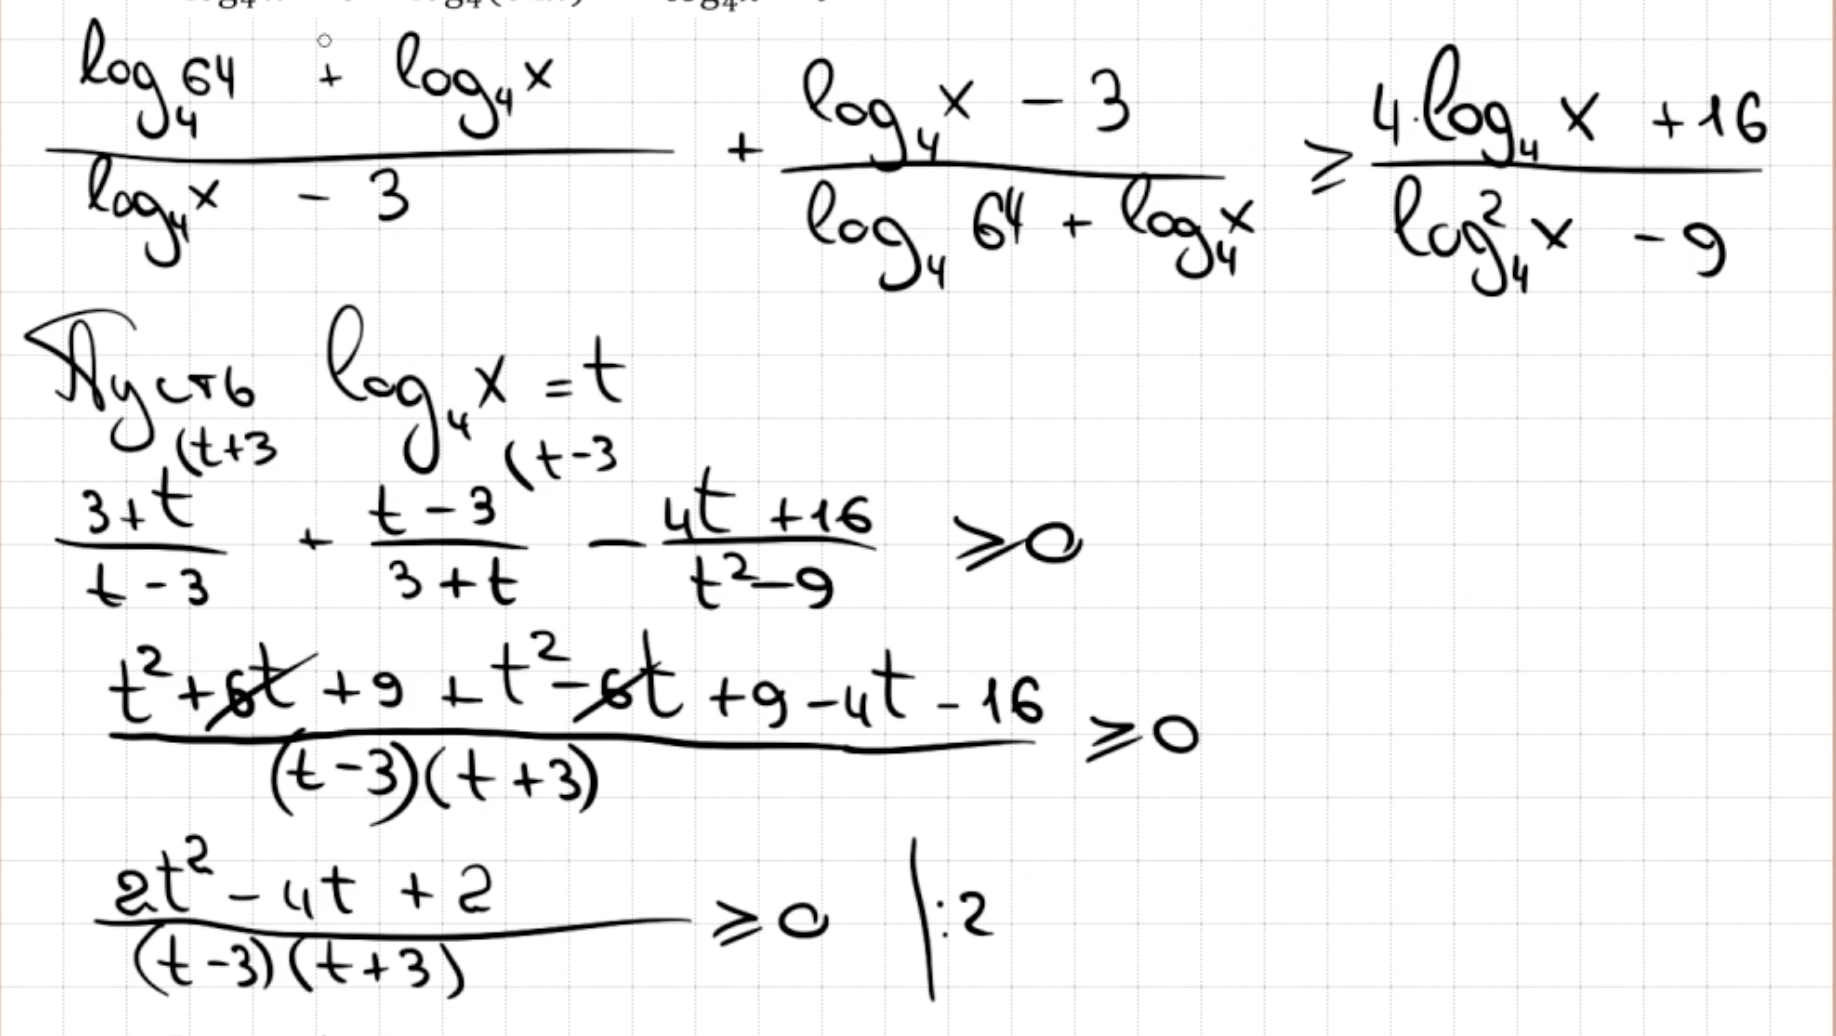 (log₄64 + log₄x)/(log₄x - 3) + (log₄x - 3)/(log₄64 + log₄x) ⩾ (4·log₄x + 16)/(log₄²x - 9)
Пусть log₄x = t
(t+3 (t-3
(3+t)/(t-3) + (t-3)/(3+t) - (4t+16)/(t²-9) ⩾ 0
(t²+6t+9+t²-6t+9-4t-16)/((t-3)(t+3)) ⩾ 0
(2t²-4t+2)/((t-3)(t+3)) ⩾ 0 |:2